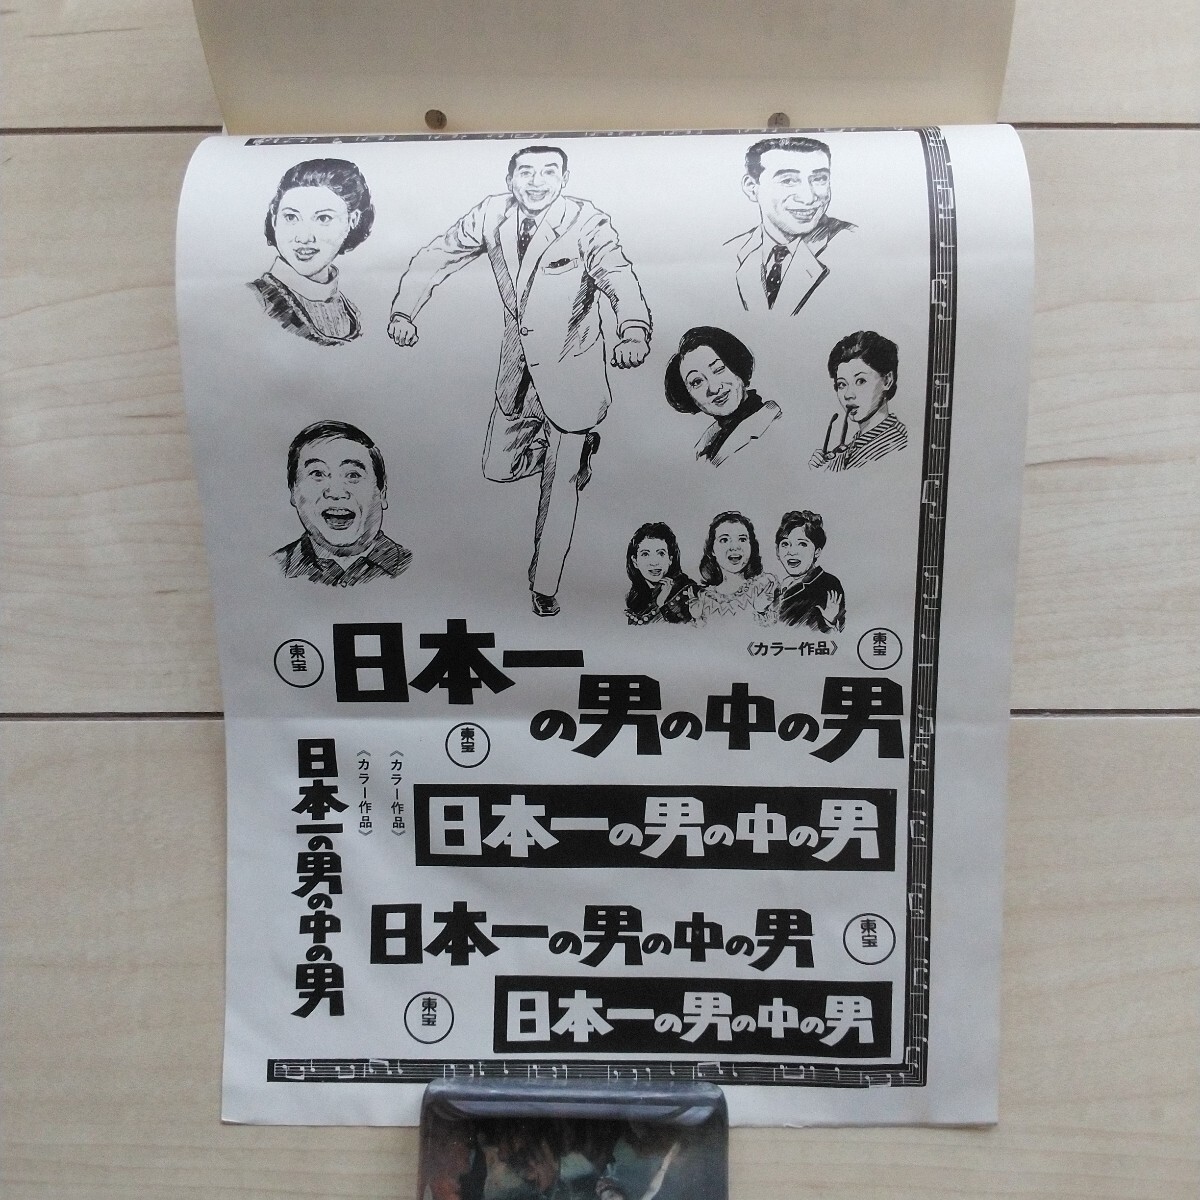 《カラー作品》
東宝
東宝
日本一
の男の中の男
東宝
日本一の男の中の男
《カラー作品》
《カラー作品》
日本一の男の中の男
日本一の男の中の男
東宝
東宝
日本一の男の中の男